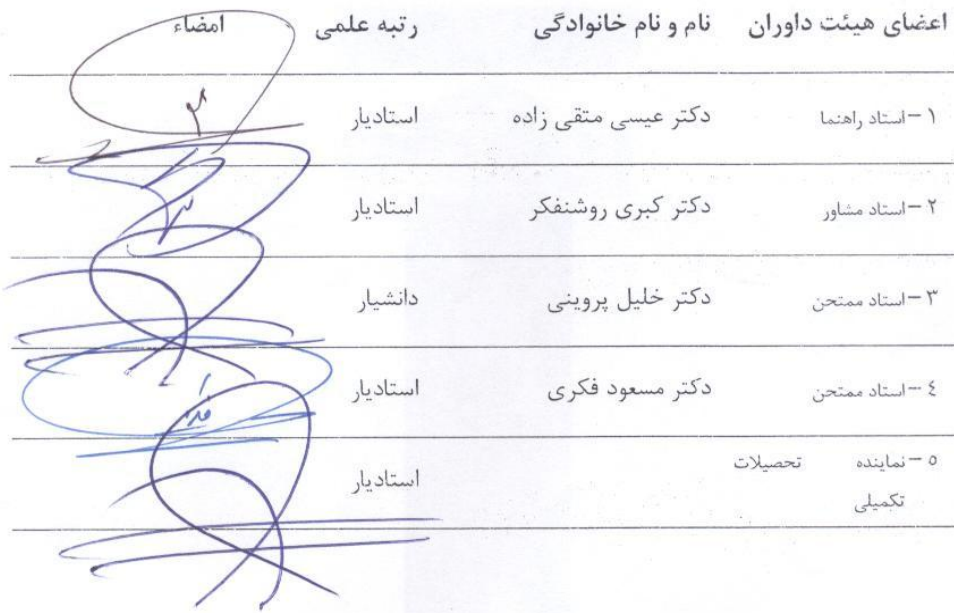 اعضای هیئت داوران نام و نام خانوادگی رتبه علمی امضاء
۱-استاد راهنما دکتر عیسی متقی زاده استادیار
۲-استاد مشاور دکتر کبری روشنفکر استادیار
۳-استاد ممتحن دکتر خلیل پروینی دانشیار
٤-استاد ممتحن دکتر مسعود فکری استادیار
٥-نماینده تحصیلات استادیار
تکمیلی